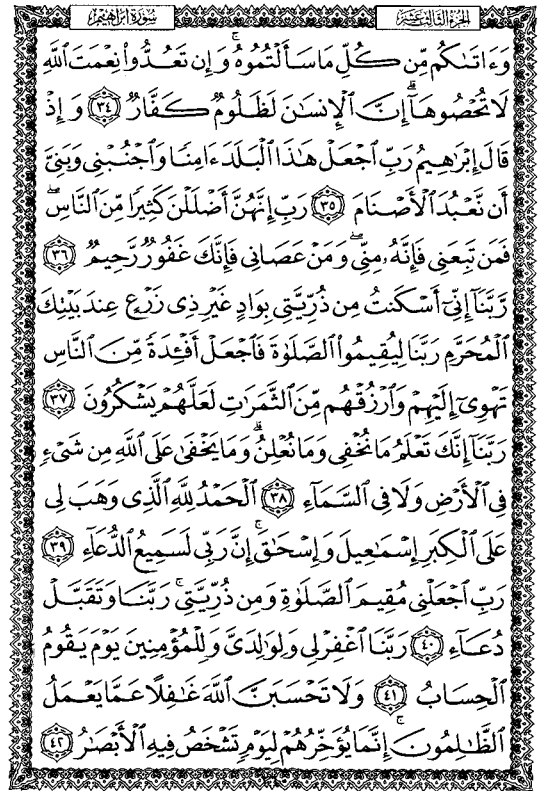 الجزء الثالث عشر
سورة ابراهيم
وَءَاتَىٰكُم مِّن كُلِّ مَا سَأَلْتُمُوهُ ۚ وَإِن تَعُدُّوا۟ نِعْمَتَ ٱللَّهِ
لَا تُحْصُوهَآ ۗ إِنَّ ٱلْإِنسَـٰنَ لَظَلُومٌ كَفَّارٌ ٣٤ وَإِذْ
قَالَ إِبْرَٰهِيمُ رَبِّ ٱجْعَلْ هَـٰذَا ٱلْبَلَدَ ءَامِنًا وَٱجْنُبْنِى وَبَنِىَّ
أَن نَّعْبُدَ ٱلْأَصْنَامَ ٣٥ رَبِّ إِنَّهُنَّ أَضْلَلْنَ كَثِيرًا مِّنَ ٱلنَّاسِ ۖ
فَمَن تَبِعَنِى فَإِنَّهُۥ مِنِّى ۖ وَمَنْ عَصَانِى فَإِنَّكَ غَفُورٌ رَّحِيمٌ ٣٦
رَّبَّنَآ إِنِّىٓ أَسْكَنتُ مِن ذُرِّيَّتِى بِوَادٍ غَيْرِ ذِى زَرْعٍ عِندَ بَيْتِكَ
ٱلْمُحَرَّمِ رَبَّنَا لِيُقِيمُوا۟ ٱلصَّلَوٰةَ فَٱجْعَلْ أَفْـِٔدَةً مِّنَ ٱلنَّاسِ
تَهْوِىٓ إِلَيْهِمْ وَٱرْزُقْهُم مِّنَ ٱلثَّمَرَٰتِ لَعَلَّهُمْ يَشْكُرُونَ ٣٧
رَبَّنَآ إِنَّكَ تَعْلَمُ مَا نُخْفِى وَمَا نُعْلِنُ ۗ وَمَا يَخْفَىٰ عَلَى ٱللَّهِ مِن شَىْءٍ
فِى ٱلْأَرْضِ وَلَا فِى ٱلسَّمَآءِ ٣٨ ٱلْحَمْدُ لِلَّهِ ٱلَّذِى وَهَبَ لِى
عَلَى ٱلْكِبَرِ إِسْمَـٰعِيلَ وَإِسْحَـٰقَ ۚ إِنَّ رَبِّى لَسَمِيعُ ٱلدُّعَآءِ ٣٩
رَبِّ ٱجْعَلْنِى مُقِيمَ ٱلصَّلَوٰةِ وَمِن ذُرِّيَّتِى ۚ رَبَّنَا وَتَقَبَّلْ
دُعَآءِ ٤٠ رَبَّنَا ٱغْفِرْ لِى وَلِوَٰلِدَىَّ وَلِلْمُؤْمِنِينَ يَوْمَ يَقُومُ
ٱلْحِسَابُ ٤١ وَلَا تَحْسَبَنَّ ٱللَّهَ غَـٰفِلًا عَمَّا يَعْمَلُ
ٱلظَّـٰلِمُونَ ۚ إِنَّمَا يُؤَخِّرُهُمْ لِيَوْمٍ تَشْخَصُ فِيهِ ٱلْأَبْصَـٰرُ ٤٢